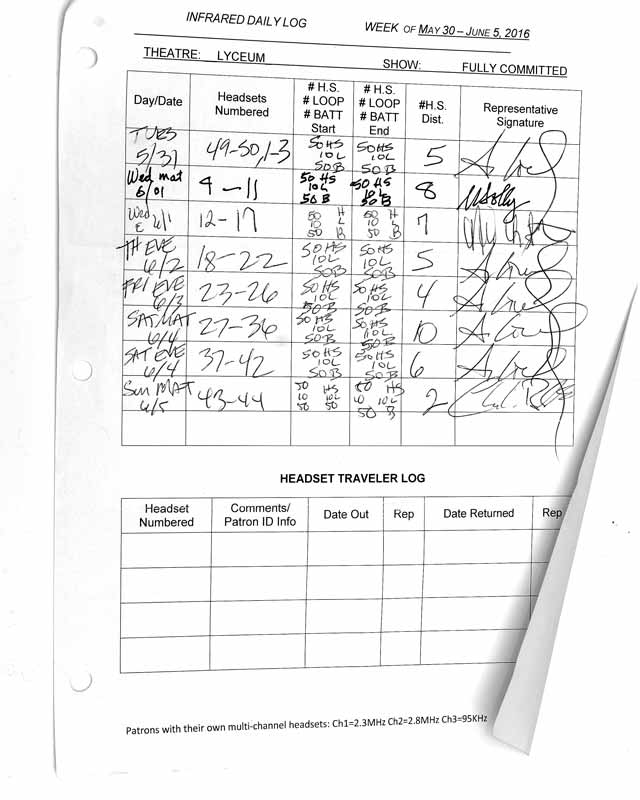 INFRARED DAILY LOG WEEK OF MAY 30 – JUNE 5, 2016
THEATRE: LYCEUM SHOW: FULLY COMMITTED
Day/Date Headsets Numbered # H.S. # LOOP # BATT Start # H.S. # LOOP # BATT End #H.S. Dist. Representative Signature
TUES 5/31 49-50, 1-3 50 HS 10 L 50 B 50 HS 10 L 50 B 5
Wed mat 6/01 4-11 50 HS 10 L 50 B 50 HS 10 L 50 B 8
Wed E 6/1 12-17 50 H 10 L 50 B 50 H 10 L 50 B 7
TH EVE 6/2 18-22 50 HS 10 L 50 B 50 HS 10 L 50 B 5
FRI EVE 6/3 23-26 50 HS 10 L 50 B 50 HS 10 L 50 B 4
SAT. MAT 6/4 27-36 50 HS 10 L 50 B 50 HS 10 L 50 B 10
SAT EVE 6/4 37-42 50 HS 10 L 50 B 50 HS 10 L 50 B 6
Sun MAT 6/5 43-44 50 HS 10 10 L 50 50 50 HS 10 10 L 50 B 2
HEADSET TRAVELER LOG
Headset Numbered Comments/ Patron ID Info Date Out Rep Date Returned Rep
Patrons with their own multi-channel headsets: Ch1=2.3MHz Ch2=2.8MHz Ch3=95KHz